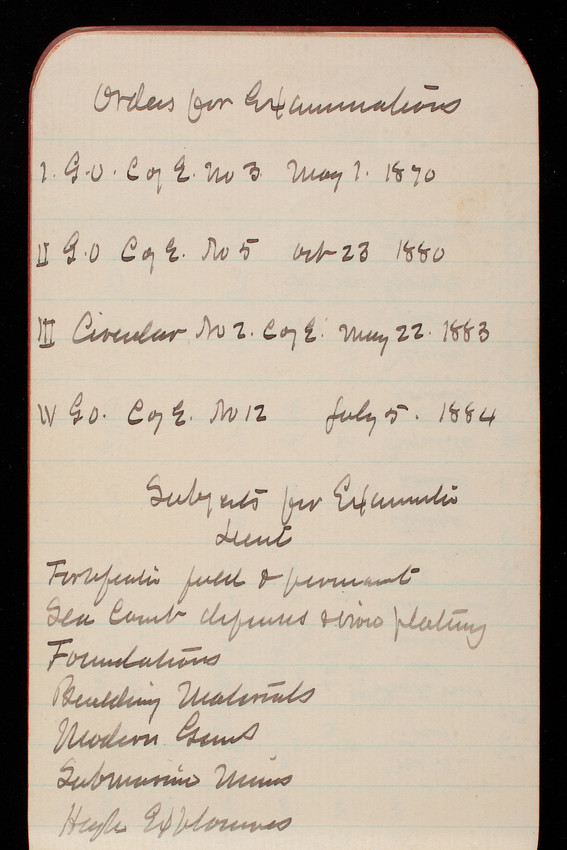 Orders for Examinations
I. G.O. C of E. No 3. May 1. 1870
II G.O C of E. No 5 Oct 23 1880
III Circular No 2. C of E. May 22. 1883
IV G.O. C of E. No 12 July 5. 1884
Subjects for Examinatio
Lieut
Fortificatio field & permanent
Sea Coast defenses & iron plating
Foundations
Building Materials
Modern Guns
Submarine Mines
High Explosives